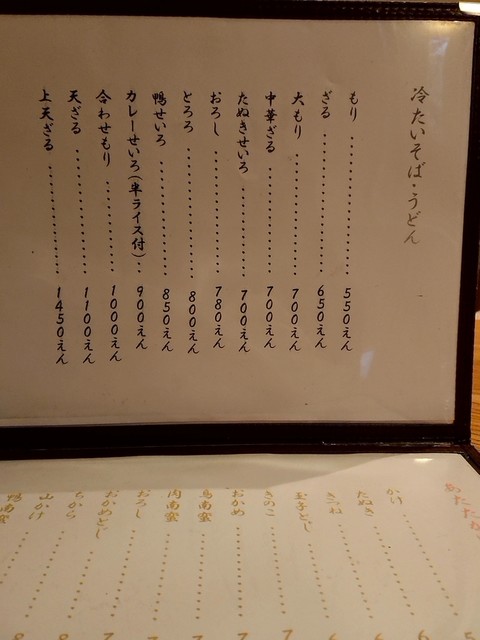 冷たいそば・うどん
もり 550えん
ざる 650えん
大もり 700えん
中華ざる 700えん
たぬきせいろ 700えん
おろし 780えん
とろろ 800えん
鴨せいろ 850えん
カレーせいろ(半ライス付) 900えん
合わせもり 1000えん
天ざる 1100えん
上天ざる 1450えん
あたたか
かけ
たぬき
きつね
玉子とじ
きのこ
おかめ
鳥南蛮
肉南蛮
おろし
おかめとじ
ちから
山かけ
鴨南蛮